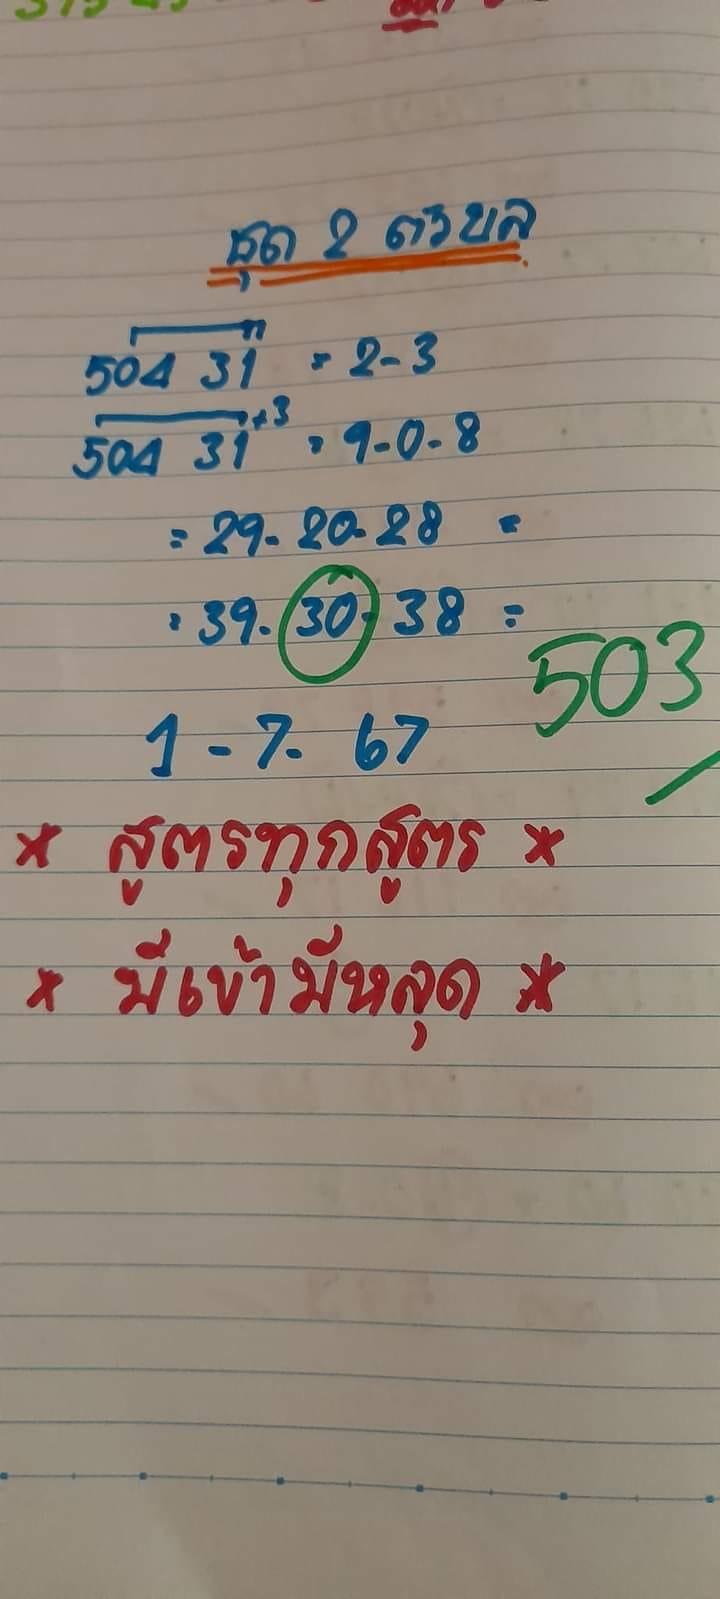 ชุด 2 ตัวบล
504 31 = 2-3
504 31 +3 = 9-0-8
= 29-20-28 =
= 39-30-38 =
503
1-7-67
* สูตรทุกสูตร *
* มีเข้ามีหลุด *